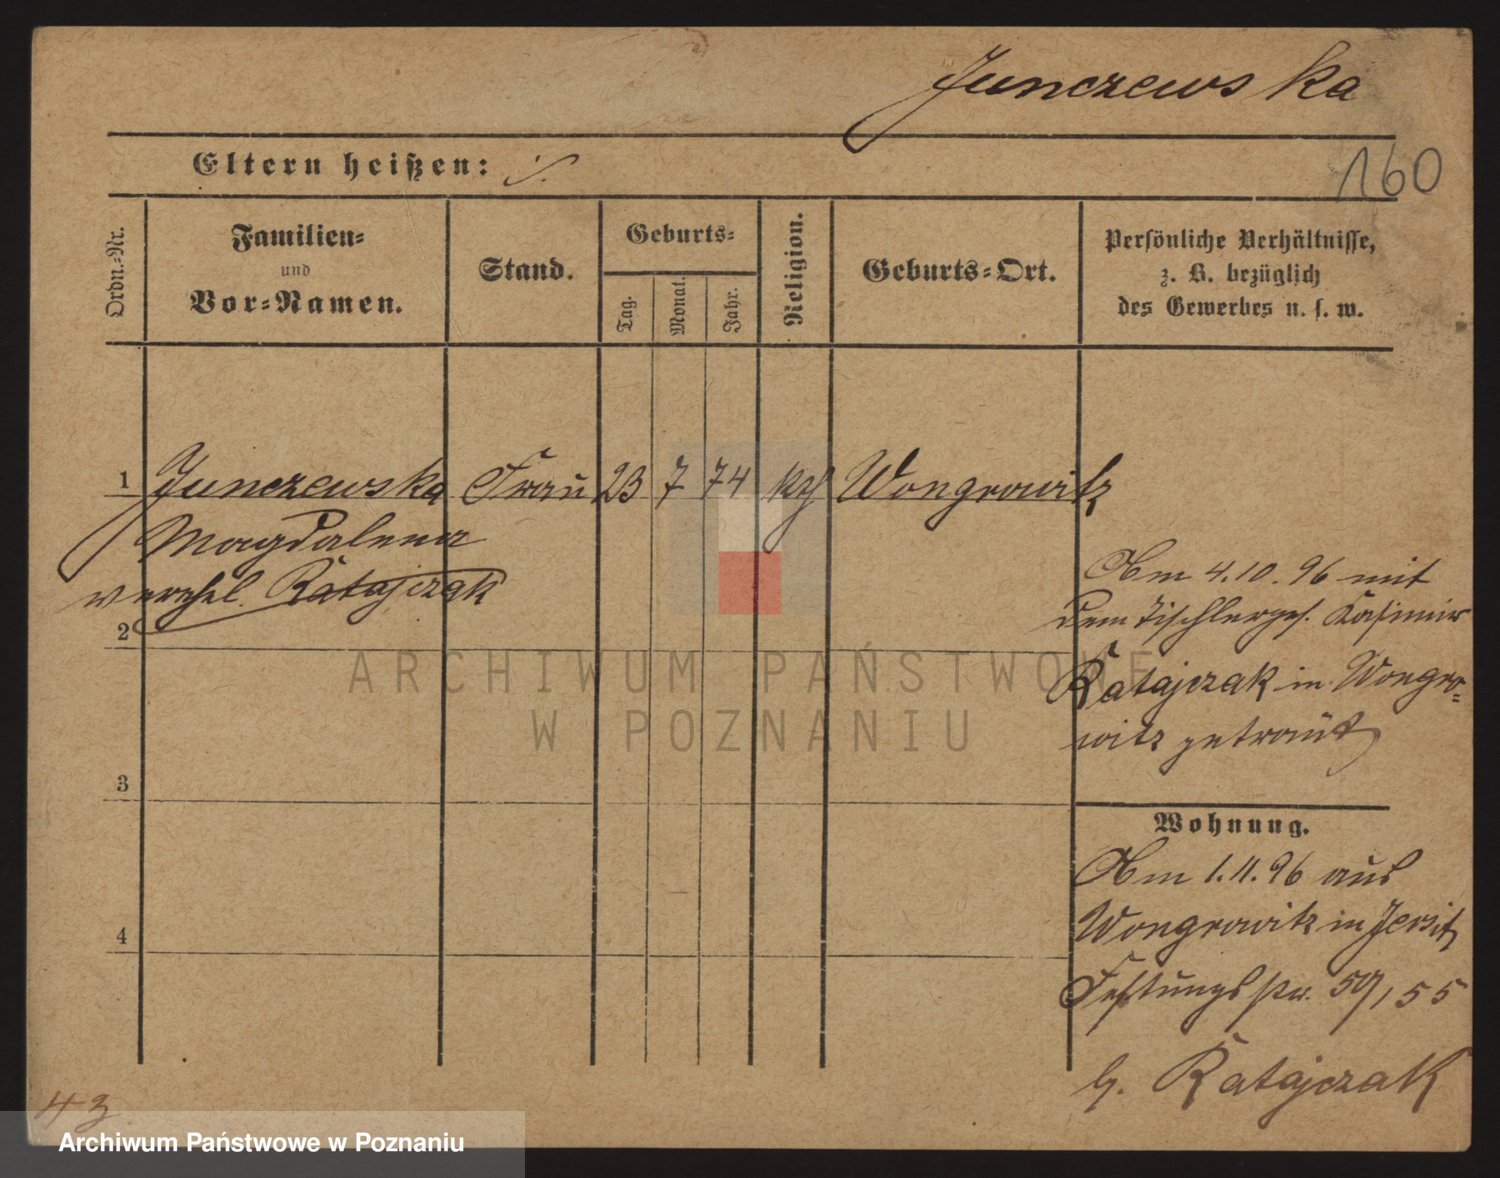 Junczewska
Eltern heißen: ./.
160
Ordn.-Nr.
Familien-
und
Vor-Namen.
Stand.
Geburts-
Tag.
Monat.
Jahr.
Religion.
Geburts-Ort.
Persönliche Verhältnisse,
z. B. bezüglich
des Gewerbes u. s. w.
1 Junczewska Frau 23 7 74 Wongrowitz
Magdalena
verehel. Ratajczak
Am 4.10.96 mit
dem Tischlerges. Kasimir
Ratajczak in Wongro-
witz getraut
2
3
4
Wohnung.
Am 1.11.96 aus
Wongrowitz in Jersitz
Festungsstr. 55
Ratajczak
43
ARCHIWUM PAŃSTWOWE
W POZNANIU
Archiwum Państwowe w Poznaniu